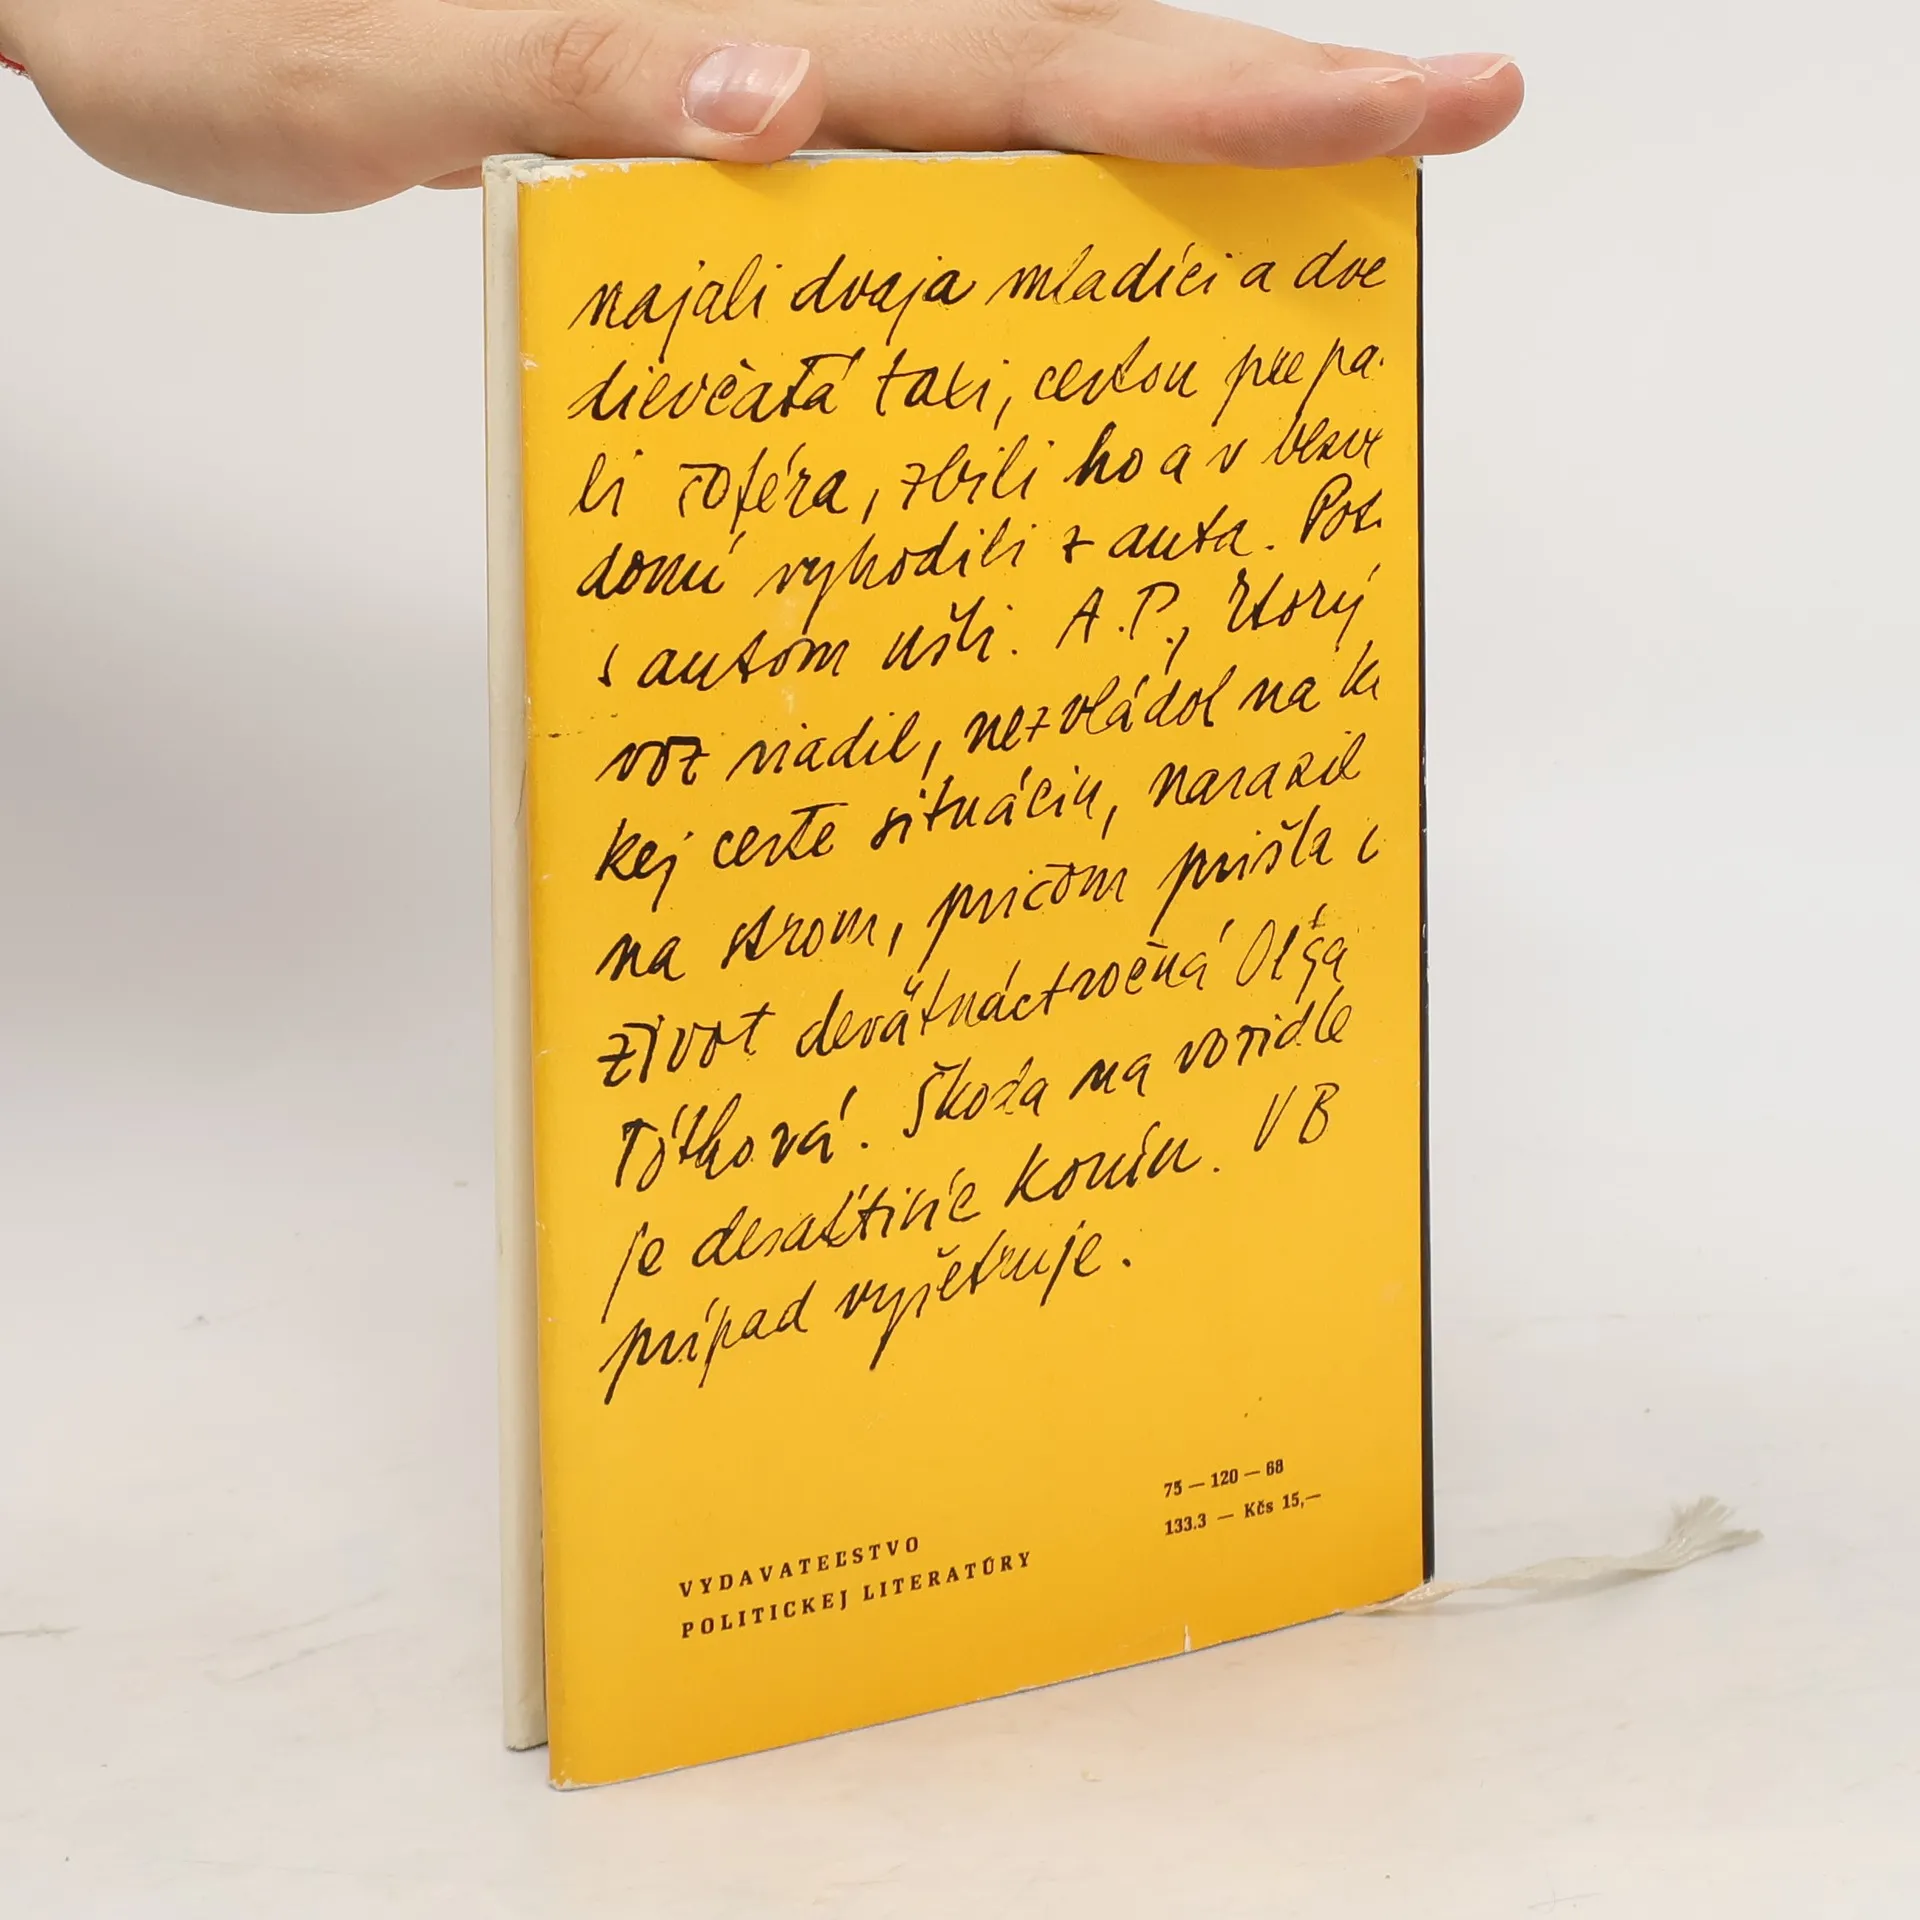 najali dvaja mladíci a dve
dievčatá taxi, cestou prepa-
li šoféra, zbili ho a v bezve
domí vyhodili z auta. Pot
s autom ušli. A. P., ktorý
voz riadil, nezvládol na k
kej ceste situáciu, narazil
na strom, pričom prišla o
život devätnáctročná Oľga
Tóthová. Škoda na vozidle
je desaťtisíc korún. VB
prípad vyšetruje.
75 — 120 — 68
133.3 — Kčs 15,—
VYDAVATEĽSTVO
POLITICKEJ LITERATÚRY